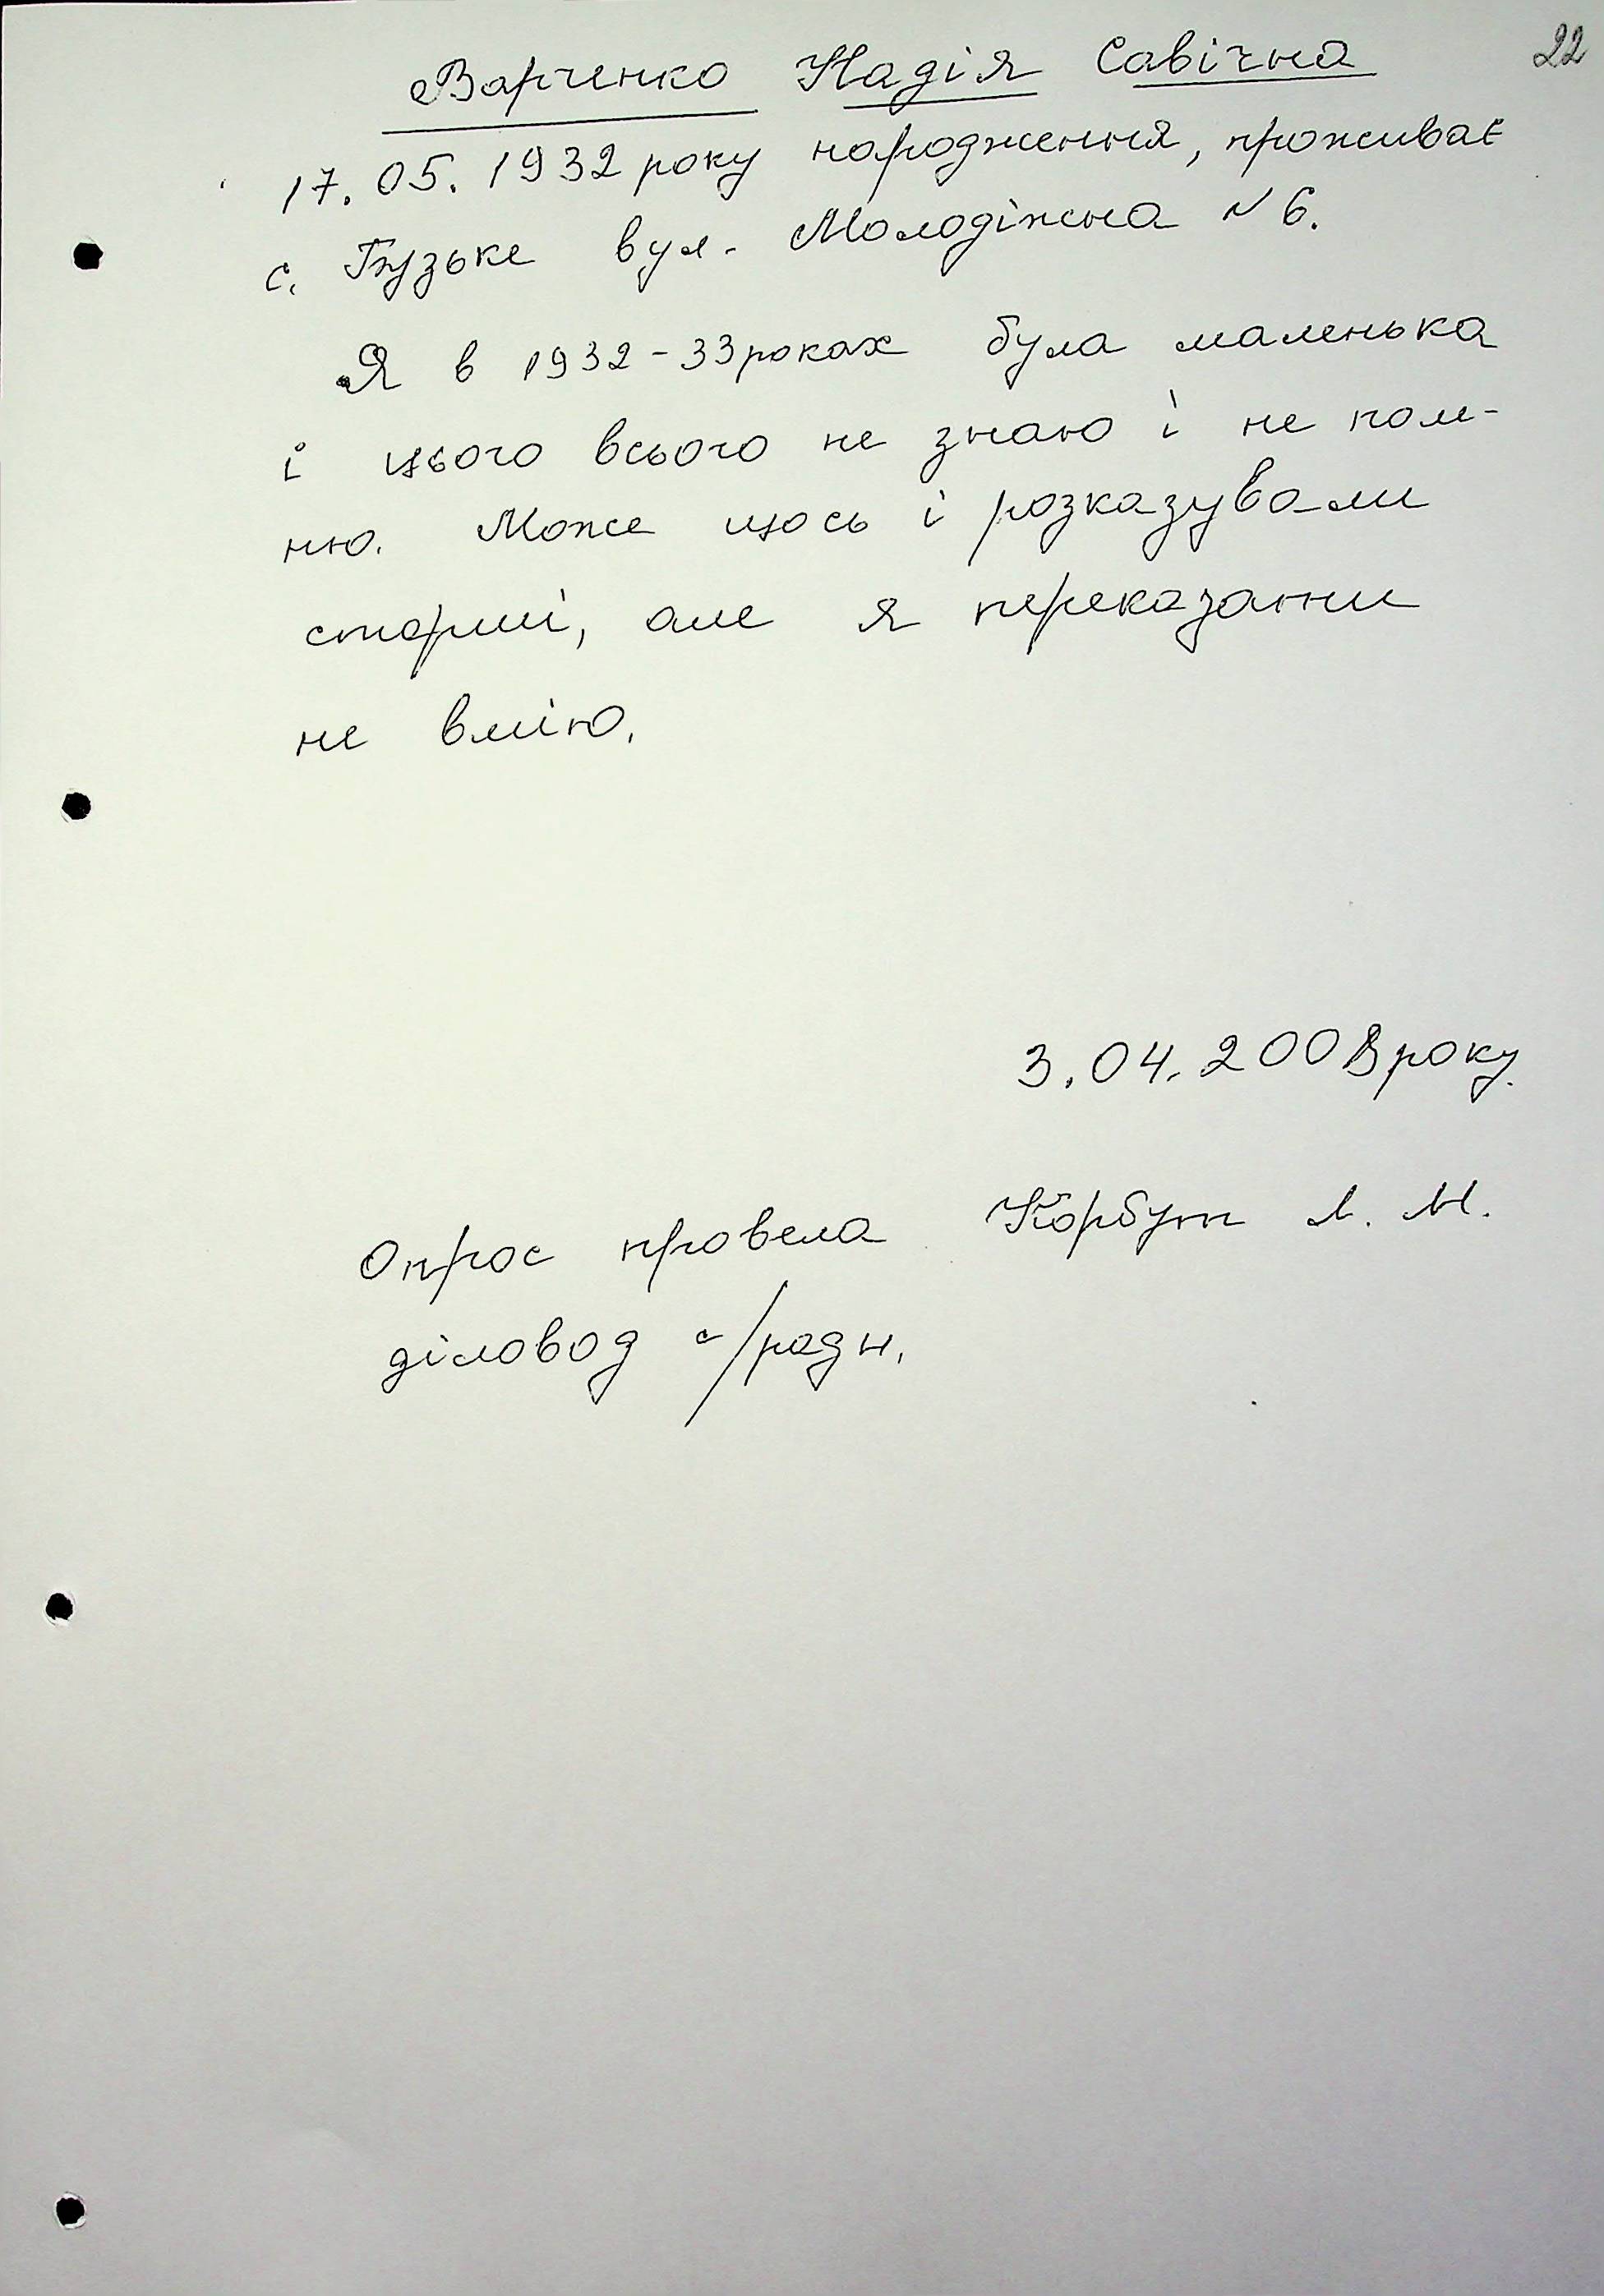 22
Варченко Надія Савічна
17.05.1932 року народження, проживає
с. Бузьке вул. Молодіжна N 6.
Я в 1932-33 роках була маленька
і цього всього не знаю і не пом-
ню. Може щось і розказували
старші, але я переказати
не вмію.
3.04.2008 року.
Опрос провела Корбут Л. М.
діловод с/ради.